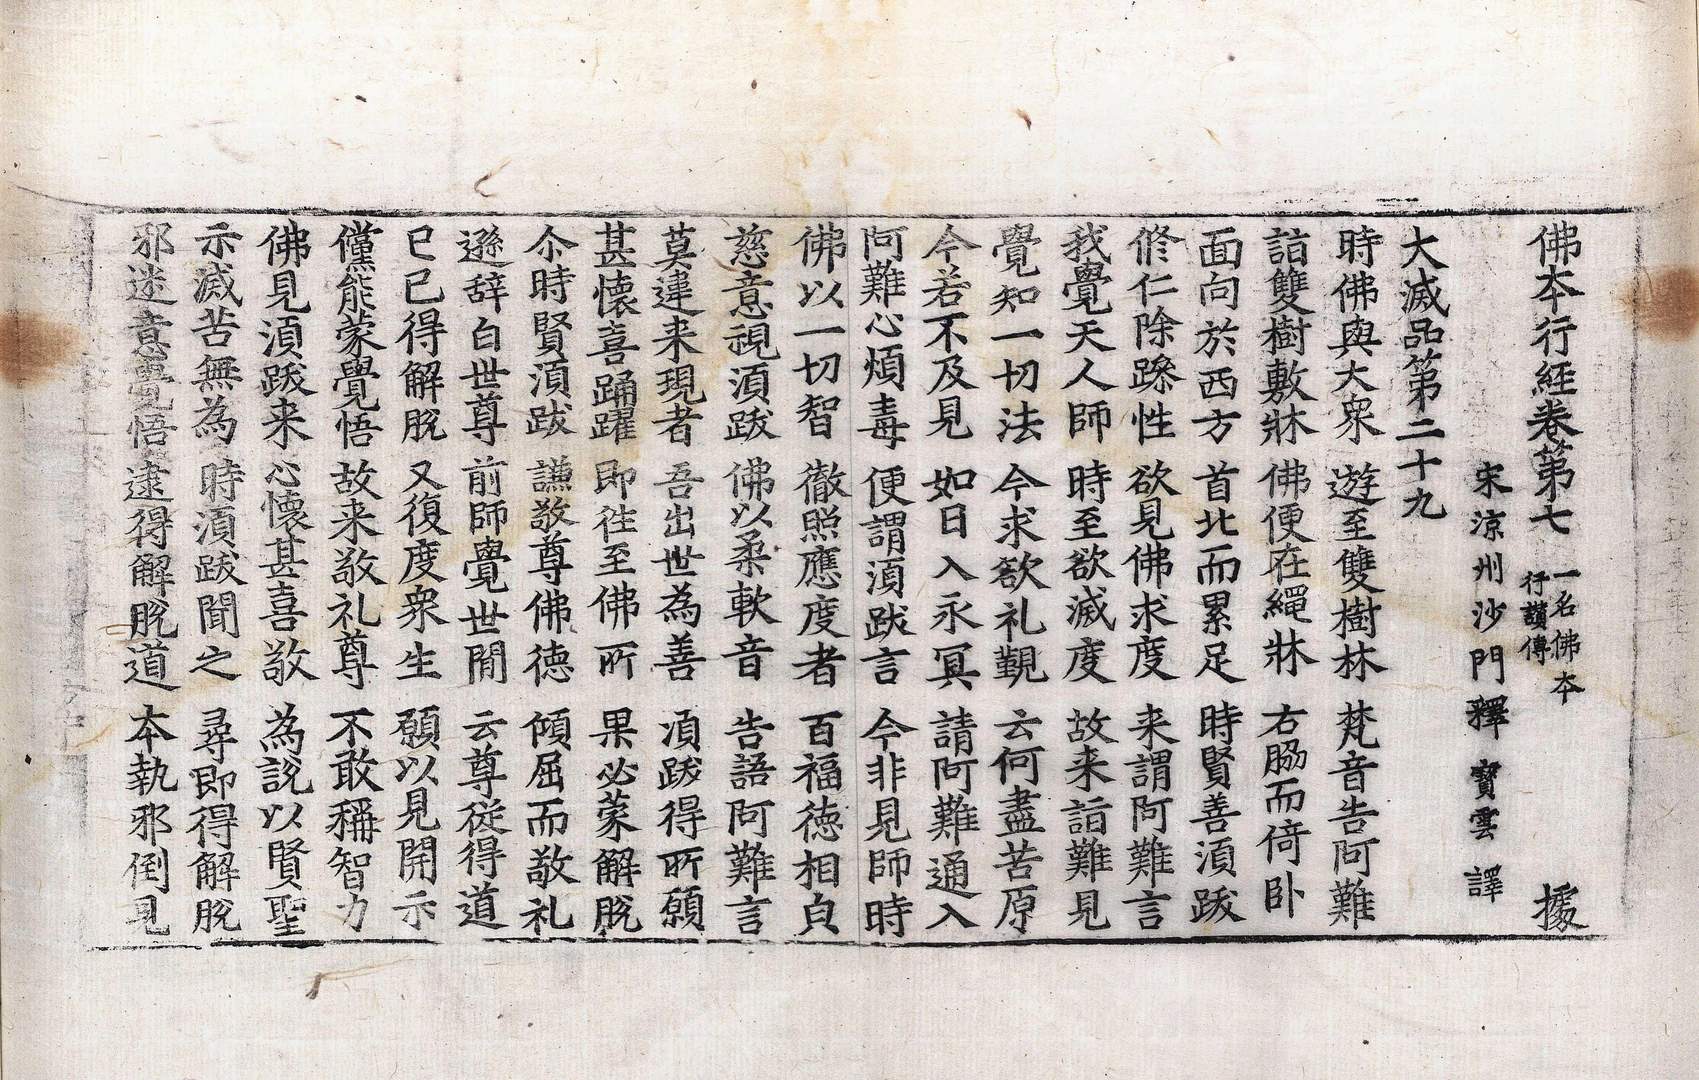 佛本行經卷第七 一名佛本行讃傳 據
宋涼州沙門釋寶雲譯
大滅品第二十九
時佛與大衆 遊至雙樹林 梵音告阿難
詣雙樹敷牀 佛便在繩牀 右脇而倚卧
面向於西方 首北而累足 時賢善湏跋
脩仁除躁性 欲見佛求度 来謂阿難言
我覺天人師 時至欲滅度 故来詣難見
覺知一切法 今求欲礼覲 云何盡苦原
今若不及見 如日入永冥 請阿難通入
阿難心煩毒 便謂湏跋言 今非見師時
佛以一切智 徹照應度者 百福德相貞
慈意視湏跋 佛以柔軟音 告語阿難言
莫違来現者 吾出世為善 湏跋得所願
甚懷喜踊躍 即徃至佛所 果必蒙解脫
尒時賢湏跋 謙敬尊佛德 傾屈而敬礼
遜辞白世尊 前師覺世間 云尊從得道
已已得解脫 又復度衆生 願以見開示
儻能蒙覺悟 故来敬礼尊 不敢稱智力
佛見湏跋来 心懷甚喜敬 為說以賢聖
示滅苦無為 時湏跋聞之 尋即得解脫
邪迷意覺悟 逮得解脫道 本執邪倒見